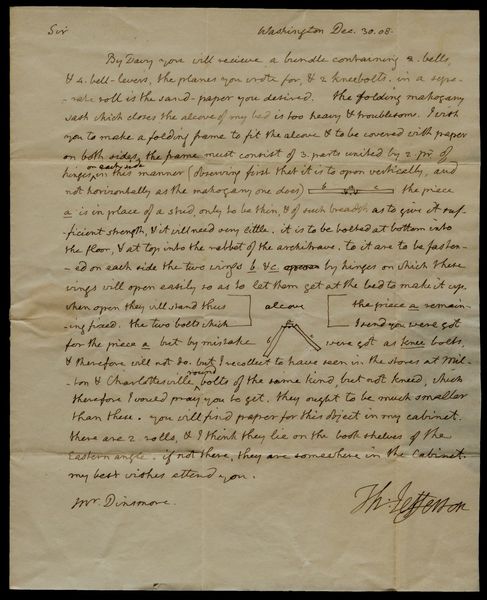 Sir
Washington Dec. 30. 08.
By Davy you will recieve a bundle containing 2. bells,
& 4. bell-levers, the planes you wrote for, & 2 kneebolts. in a sepa-
-rate roll is the sand-paper you desired. the folding mahogany
sash which closes the alcove of my bed is too heavy & troublesome. I wish
you to make a folding frame to fit the alcove & to be covered with paper
on both sides, the frame must consist of 3. parts united by 2 pr. of
on each side
hinges, in this manner (observing first that it is to open vertically, and
not horizontally as the mahogany one does) b a c the piece
a is in place of a stud, only to be thin, & of such breadth as to give it suf-
-ficient strength, & it will need very little. it is to be bolted at bottom into
the floor, & at top into the rabbet of the architrave. to it are to be fasten-
-ed on each side the two wings b & c by hinges on which these
wings will open easily so as to let them get at the bed to make it up.
when open they will stand thus alcove the piece a remain-
-ing fixed. the two bolts which I send you were got
for the piece a but by mistake were got as knee bolts,
& therefore will not do. but I recollect to have seen in the stores at Mil-
round
-ton & Charlottesville, bolts of the same kind but not kneed, which
therefore I would pray you to get. they ought to be much smaller
than these. you will find paper for this object in my cabinet.
there are 2 rolls, & I think they lie on the book shelves of the
Eastern angle. if not there, they are somewhere in the Cabinet.
my best wishes attend you.
Mr. Dinsmore.
Th: Jefferson